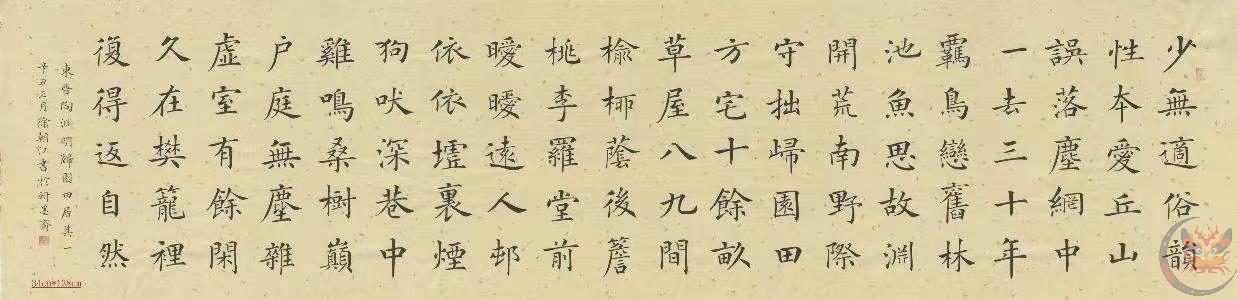 少無適俗韻
性本愛丘山
誤落塵網中
一去三十年
羈鳥戀舊林
池魚思故渊
開荒南野際
守拙歸園田
方宅十餘畝
草屋八九間
榆柳蔭後簷
桃李羅堂前
曖曖遠人邨
依依墟裏煙
狗吠深巷中
雞鳴桑樹巔
户庭無塵雜
虛室有餘閑
久在樊籠裡
復得返自然
東晉陶渊明歸園田居其一
辛丑正月徐朝江書於翰墨齋
34cm*138cm